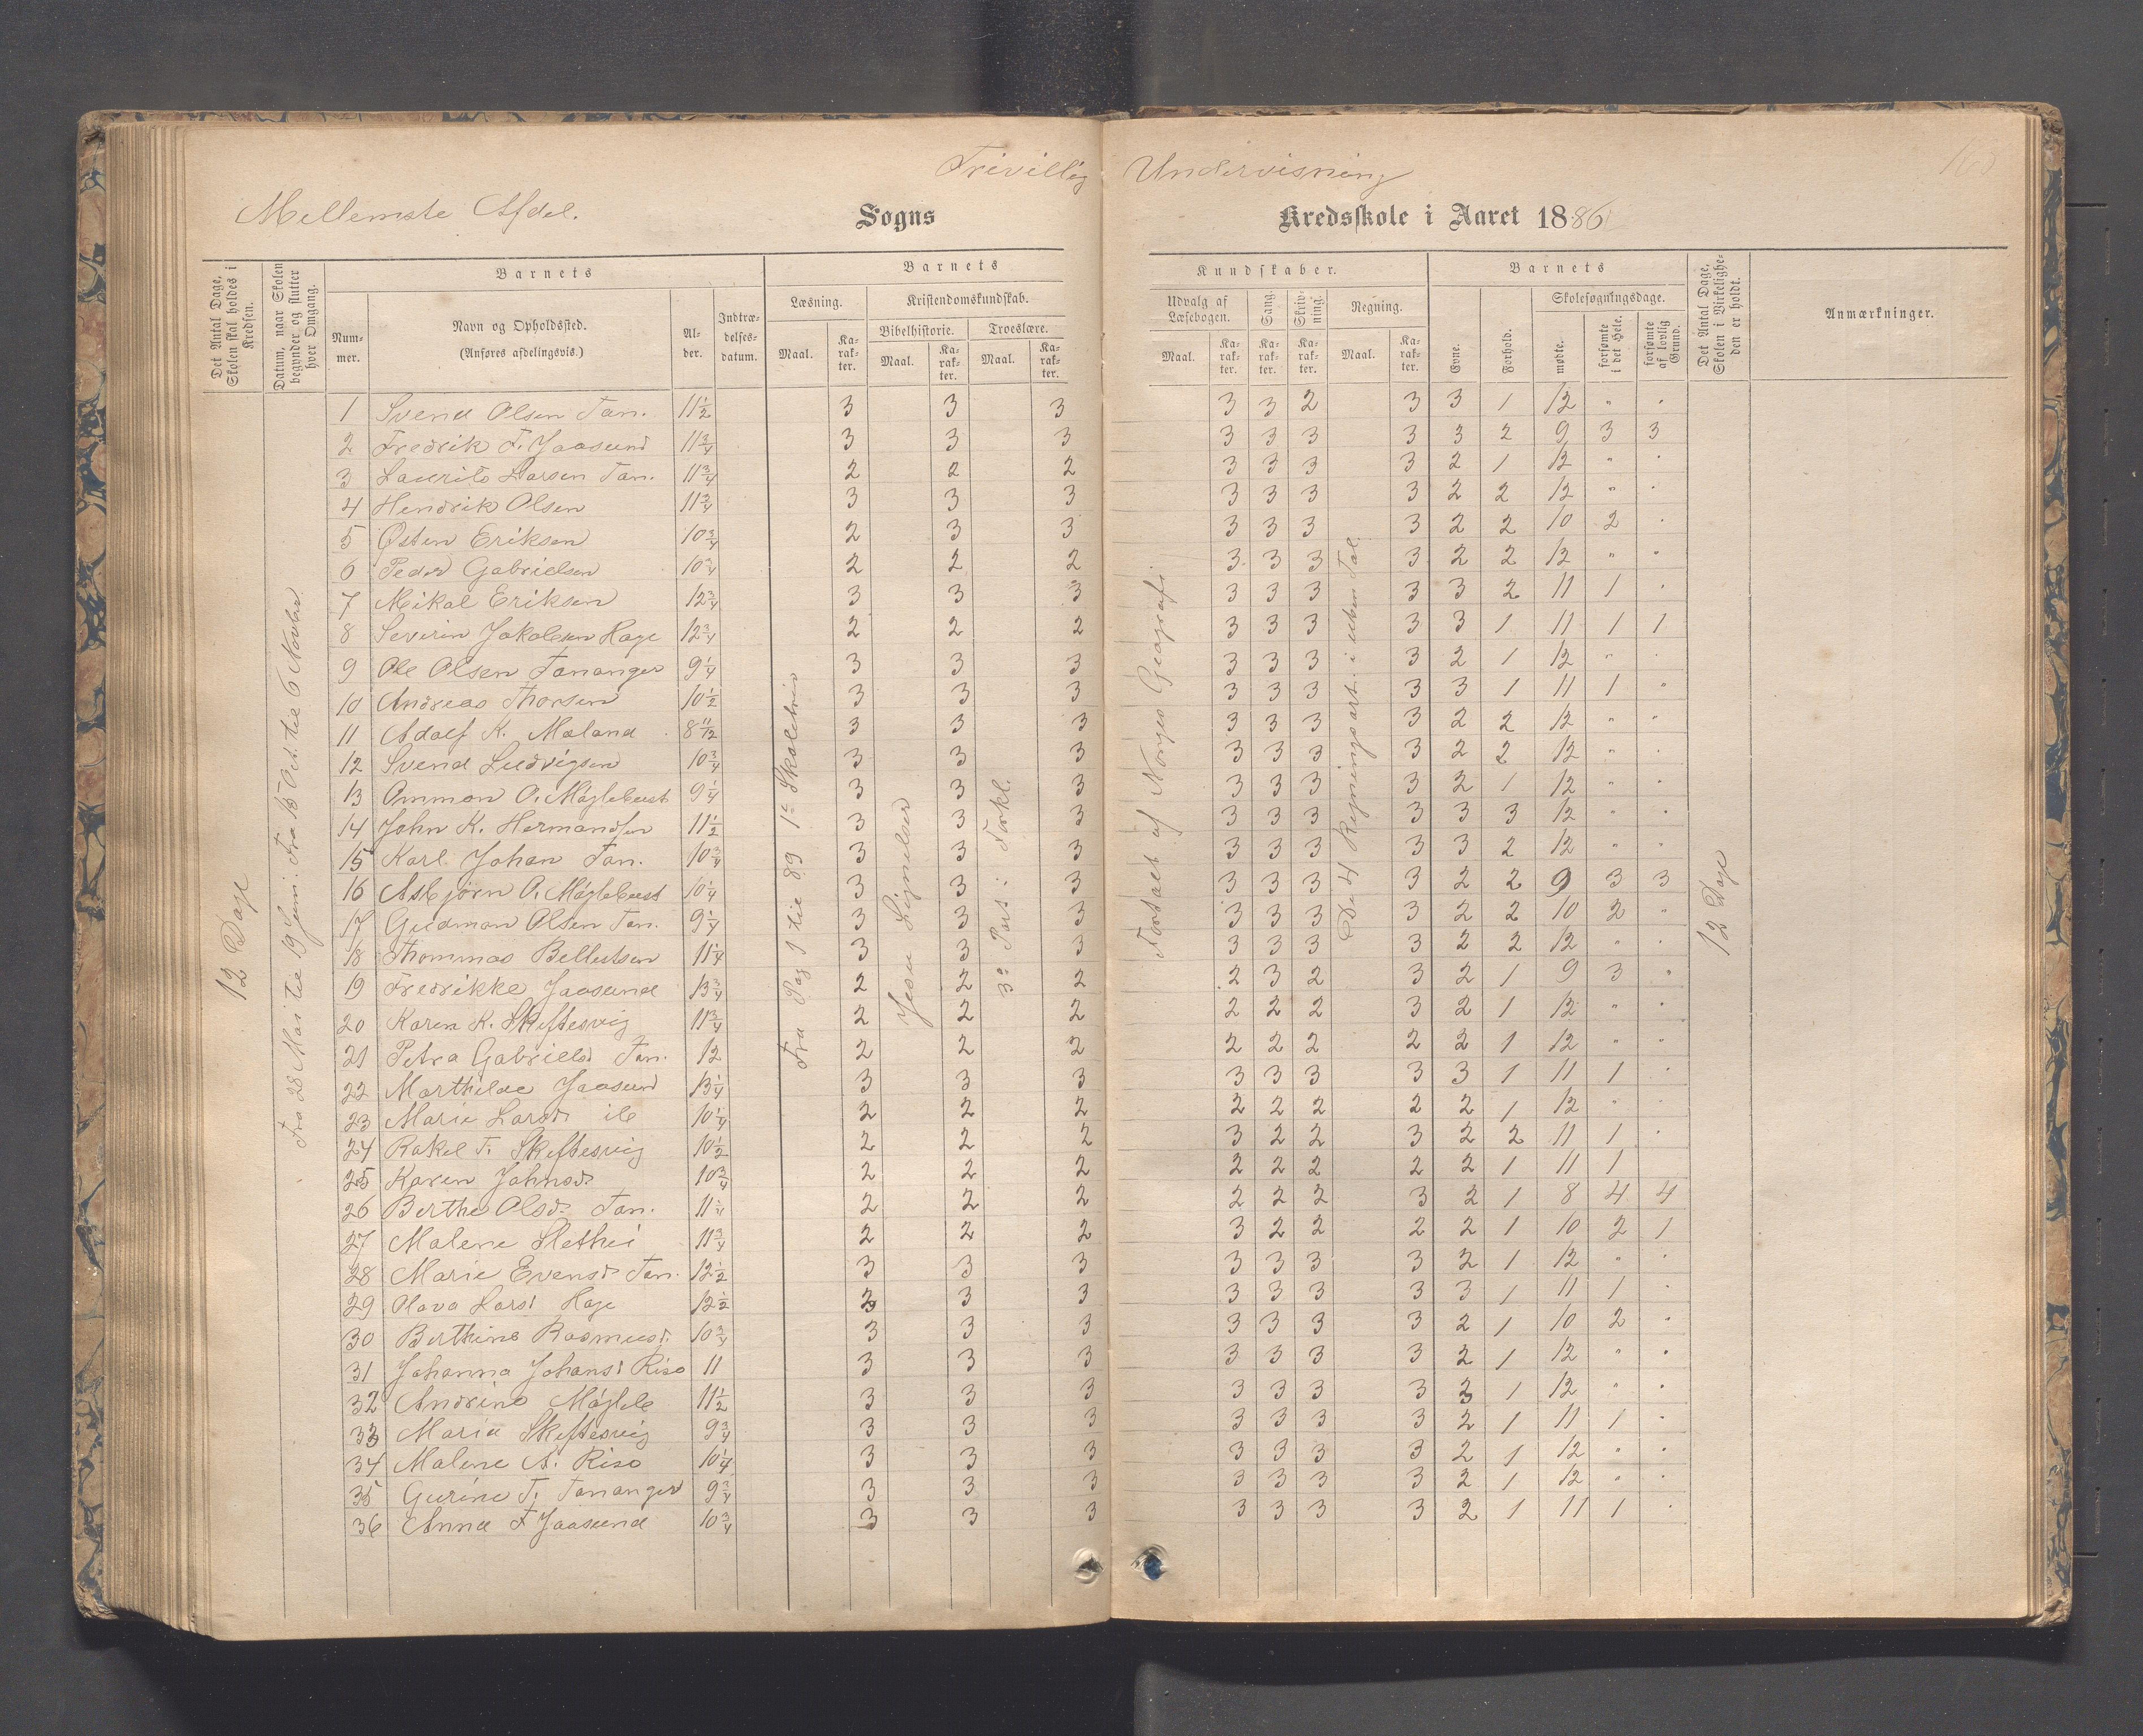 Frivillig Undervisning
Mellemste Afdel. Sogns Kredsskole i Aaret 1886
Det Antal Dage, Skolen skal holdes i Kredsen.
Datum, naar Skolen begynder og slutter hver Omgang.
Barnets
Nummer.
Navn og Opholdssted.
(Anføres afdelingsvis.)
Alder.
Indtrædelsesdatum.
Barnets
Læsning.
Maal.
Karakter.
Kristendomskundskab.
Bibelhistorie.
Maal.
Karakter.
Troeslære.
Maal.
Karakter.
Kundskaber.
Udvalg af Læsebogen.
Maal.
Karakter.
Sang.
Karakter.
Skrivning.
Karakter.
Regning.
Maal.
Karakter.
Barnets
Evne.
Forhold.
Skolesøgningsdage.
mødte.
forsømte i det Hele.
forsømte af lovlig Grund.
Det Antal Dage, Skolen i Virkeligheden er holdt.
Anmærkninger.
12 Dage
Fra 28 Mai til 19 Juni. Fra 15 Oct. til 6 Novbr
Fra Pag 1 til 89 1ste Skoletrin
Jesu Lignelser
3die Part: Forkl.
Fortalt af Norges Geografi
De 4 Regningsart. i ueben Tal.
12 Dage
1 Svend Olsen Tan. 11 1/2 3 3 3 3 3 2 3 3 1 12 " "
2 Fredrik F. Jaasund 11 3/4 3 3 3 3 3 3 3 3 2 9 3 3
3 Laurits Larsen Tan. 11 3/4 2 2 2 3 3 3 3 2 1 12 " "
4 Hendrik Olsen 11 3/4 3 3 3 3 3 3 3 2 2 12 " "
5 Østen Eriksen 10 3/4 2 3 3 3 3 3 3 2 2 10 2 "
6 Peder Gabrielsen 10 3/4 2 2 2 3 3 3 3 2 2 12 " "
7 Mikal Eriksen 12 3/4 3 3 3 3 3 3 3 3 2 11 1 "
8 Severin Jakobsen Hage 12 3/4 2 2 2 3 3 3 3 3 1 11 1 1
9 Ole Olsen Tananger 9 1/4 3 3 3 3 3 3 3 2 1 12 " "
10 Andreas Thorsen 10 1/2 3 3 3 3 3 3 3 3 1 11 1 "
11 Adolf K. Meland 8 11/12 3 3 3 3 3 3 3 2 2 12 " "
12 Svend Ludvigsen 10 3/4 3 3 3 3 3 3 3 2 2 12 " "
13 Ommon O. Myglebust 9 1/4 3 3 3 3 3 3 3 2 1 12 " "
14 John K. Hermandsen 11 1/2 3 3 3 3 3 3 3 3 3 12 " "
15 Karl Johan Tan. 10 3/4 3 3 3 3 3 3 3 3 2 12 " "
16 Asbjørn O. Myglebust 10 1/4 3 3 3 3 3 3 3 2 2 9 3 3
17 Gudmon Olsen Tan. 9 1/4 3 3 3 3 3 3 3 2 2 10 2 "
18 Thommas Bellestsen 11 1/4 3 3 3 3 3 3 3 2 2 12 " "
19 Fredrikke Jaasund 13 3/4 2 2 2 2 3 2 3 2 1 9 3 "
20 Karen K. Skiftesvig 11 3/4 2 2 2 2 2 2 3 2 1 12 " "
21 Petra Gabrielsd. Tan. 12 2 2 2 2 2 2 2 2 1 12 " "
22 Marthilde Jaasund 13 1/4 3 3 3 3 3 3 3 3 1 11 1 "
23 Marie Larsd. ib 10 1/4 2 2 2 2 2 2 2 2 1 12 " "
24 Rakel T. Skiftesvig 10 1/2 2 2 2 3 2 2 3 2 2 11 1 "
25 Karen Johnsd. 10 3/4 2 2 2 2 2 2 2 2 1 11 1
26 Berthe Olsd. Tan. 11 1/4 2 2 2 2 2 2 3 2 1 8 4 4
27 Malene Slethei 11 3/4 2 2 2 3 2 2 2 2 1 10 2 1
28 Marie Evensd. Tan. 12 1/2 3 3 3 3 3 3 3 2 1 12 " "
29 Olava Larsd. Hage 12 1/2 3 3 3 3 3 3 3 3 1 11 1 "
30 Berthine Rasmusd. 10 3/4 3 3 3 3 3 3 3 2 1 10 2 "
31 Johanna Johansd Riso 11 3 3 3 3 3 3 3 2 1 12 " "
32 Andrine Mygleb 11 1/2 3 3 3 3 3 3 3 3 1 12 " "
33 Maria Skiftesvig 9 3/4 3 3 3 3 3 3 3 2 1 11 1 "
34 Malene A. Riso 10 1/4 3 3 3 3 3 3 3 2 1 12 " "
35 Gurine T. Tananger 9 3/4 3 3 3 3 3 3 3 2 1 12 " "
36 Anna F Jaasund 10 3/4 3 3 3 3 3 3 3 2 1 11 1 "